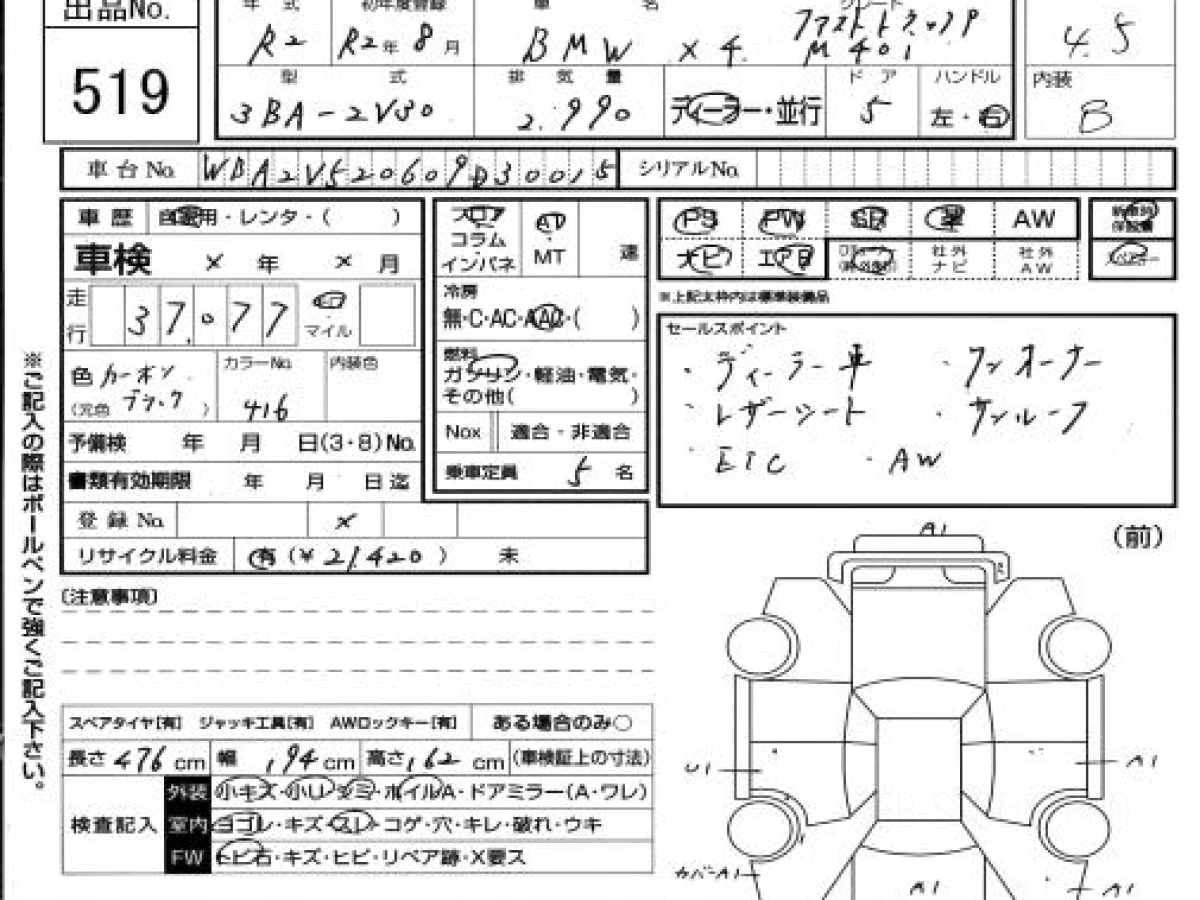 出品No.
年 式 初年度登録 車 名 グレード
R2 R2年8月 BMW X4. M40i
4.5
519
型 式 排 気 量 ドア ハンドル 内装
3BA-2V30 2.990 ディーラー・並行 5 左・右 B
車台No. WBA2V520609D30015 シリアルNo.
車歴 自家用・レンタ・( )
フロア AT
PS PW SR 革 AW
コラム MT 速
インパネ
車検 × 年 × 月
ナビ エアB 社外ナビ 社外AW
走行 37.077 マイル
冷房
無・C・AC・AAC・( )
※上記太枠内は標準装備品
セールスポイント
・ディーラー車 ・ワンオーナー
・レザーシート ・サンルーフ
・ETC ・AW
色 カーボンブラック カラーNo. 416 内装色
(元色 )
燃料
ガソリン・軽油・電気・
その他( )
予備検 年 月 日(3・8)No.
Nox 適合・非適合
書類有効期限 年 月 日迄
乗車定員 5 名
登録No. ×
リサイクル料金 有(¥21,420) 未
(前)
A1
〔注意事項〕
※ご記入の際はボールペンで強くご記入下さい。
スペアタイヤ[有] ジャッキ工具[有] AWロックキー[有] ある場合のみ○
長さ476cm 幅194cm 高さ162cm (車検証上の寸法)
検査記入
外装 小キズ・小凹・ホイルA・ドアミラー(A・ワレ)
室内 ヨゴレ・キズ・スレ・コゲ・穴・キレ・破れ・ウキ
FW トビ石・キズ・ヒビ・リペア跡・X要ス
U1 A1
カバーA1 A1 A1